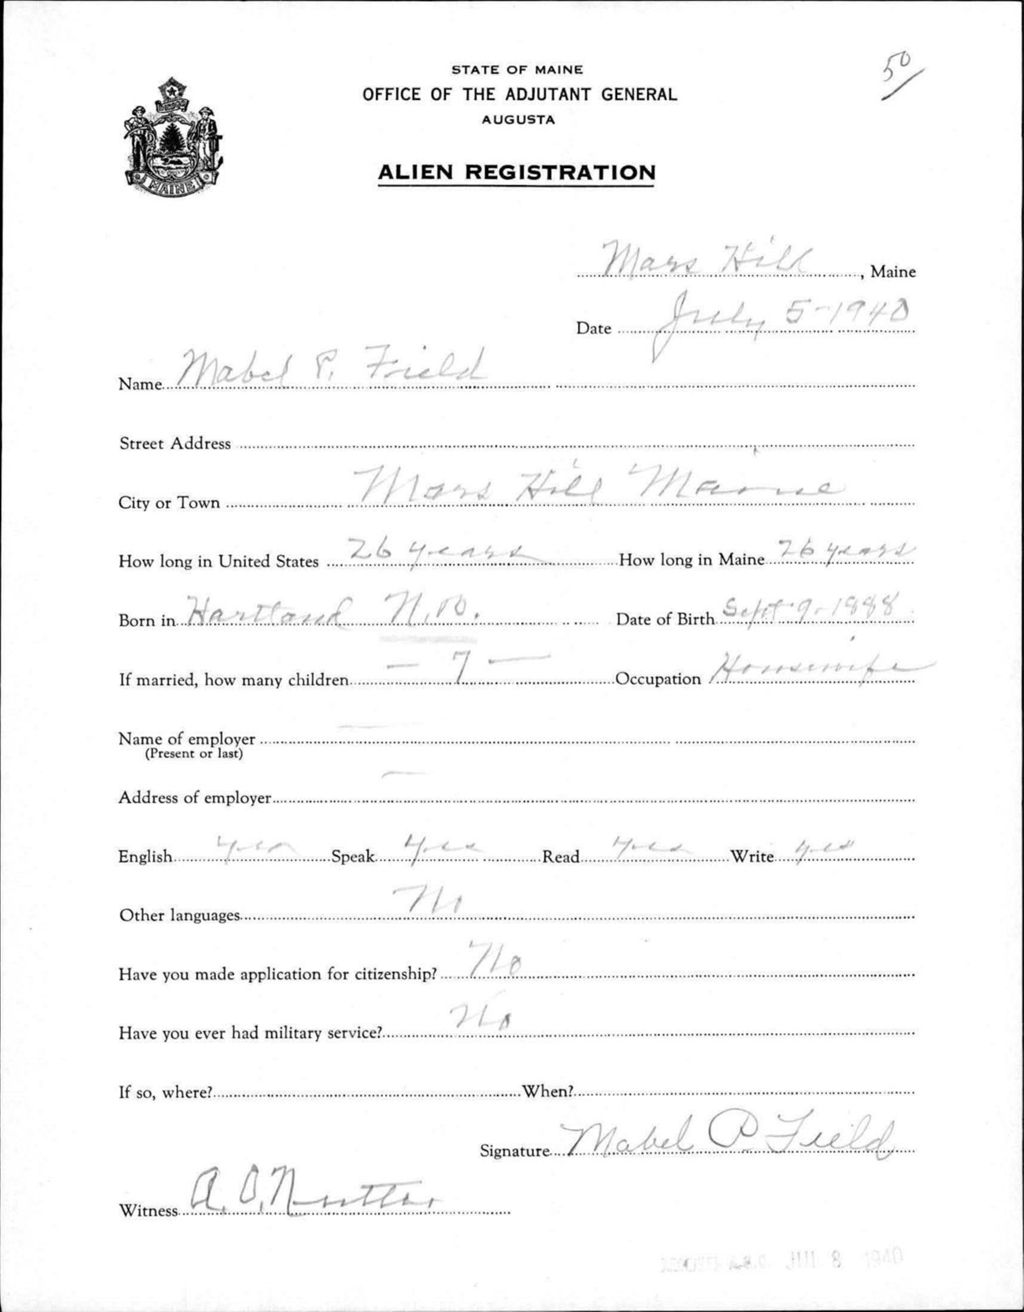 STATE OF MAINE
50
OFFICE OF THE ADJUTANT GENERAL
AUGUSTA
MAINE
ALIEN REGISTRATION
Mars Hill, Maine
Date July 5-1940
Name Mabel P. Field
Street Address
City or Town Mars Hill Maine
How long in United States 26 years How long in Maine 26 years
Born in Hartland N.B. Date of Birth Sept 9-1888
If married, how many children - 7 - Occupation Housewife
Name of employer —
(Present or last)
Address of employer —
English yes Speak yes Read yes Write yes
Other languages No
Have you made application for citizenship? No
Have you ever had military service? No
If so, where? When?
Signature Mabel P Field
Witness A. O. Nutter
JUL 8 1940